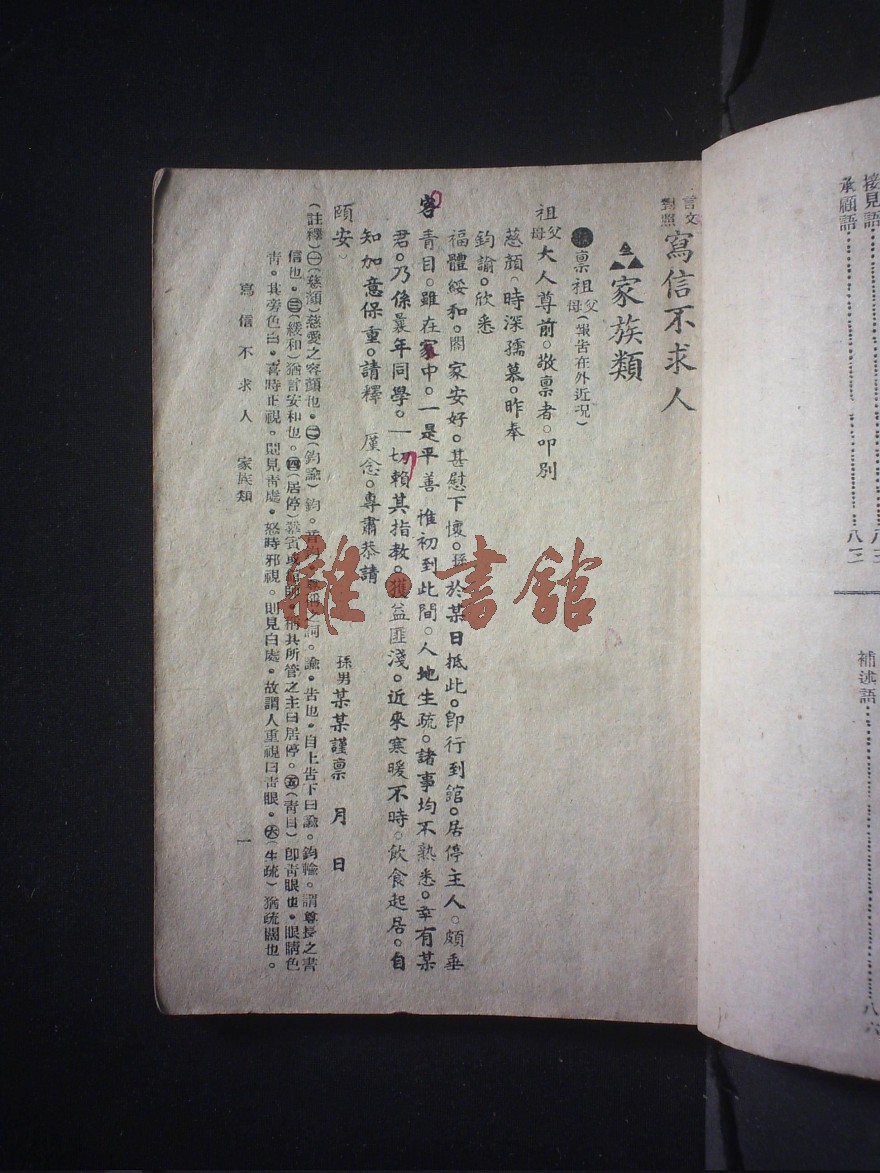 言文對照 寫信不求人
家族類
稟祖父母（報告在外近況）
祖父母大人尊前。敬稟者。叩別
慈顏。時深孺慕。昨奉
鈞諭。欣悉
福體綏和。闔家安好。甚慰下懷。孫於某日抵此。卽行到館。居停主人。頗垂
青目。雖在客中。一是平善。惟初到此間。人地生疏。諸事均不熟悉。幸有某
君。乃係曩年同學。一切賴其指教。獲益匪淺。近來寒暖不時。飮食起居。自
知加意保重。請釋 厪念。專肅恭請
頤安。
孫男某某謹稟 月 日
（註釋）㊀（慈顏）慈愛之容顏也。㊁（鈞諭）鈞。之詞。諭。吿也。自上吿下曰諭。鈞諭。謂尊長之書
信也。㊂（綏和）猶言安和也。㊃（居停）稱其所管之主曰居停。㊄（靑目）卽靑眼也。眼睛色
靑。其旁色白。喜時正視。則見靑處。怒時邪視。則見白處。故謂人重視曰靑眼。㊅（生疏）猶疏闊也。
寫信不求人 家族類 一
客
雜·書館
接見語 八三
承顧語 八三
補述語 八六